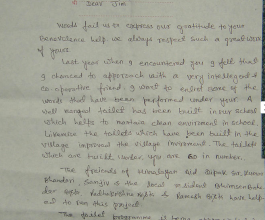 Dear Jim
Words fail us express our gratitude to your
benevolence help. we always respect such a great work
of yours.
Last year when I encountered you I felt that
I chanced to approach with a very intelligent &
co-operative friend. I want to enlist some of the
works that have been performed under your. A
well managed toilet has been built in our school
which helps to maintain clean enviroment in school.
Likewise the toilets which have been built in the
village improved the village enviroment. The toilets
which are built under you are 60 in number.
The friends of Himalayan aid Dipak Sir, Kumar
Bhandari Sanjiv & the local resident
& Ramesh Giri have help
ed to run this project.
The toilet programme is being